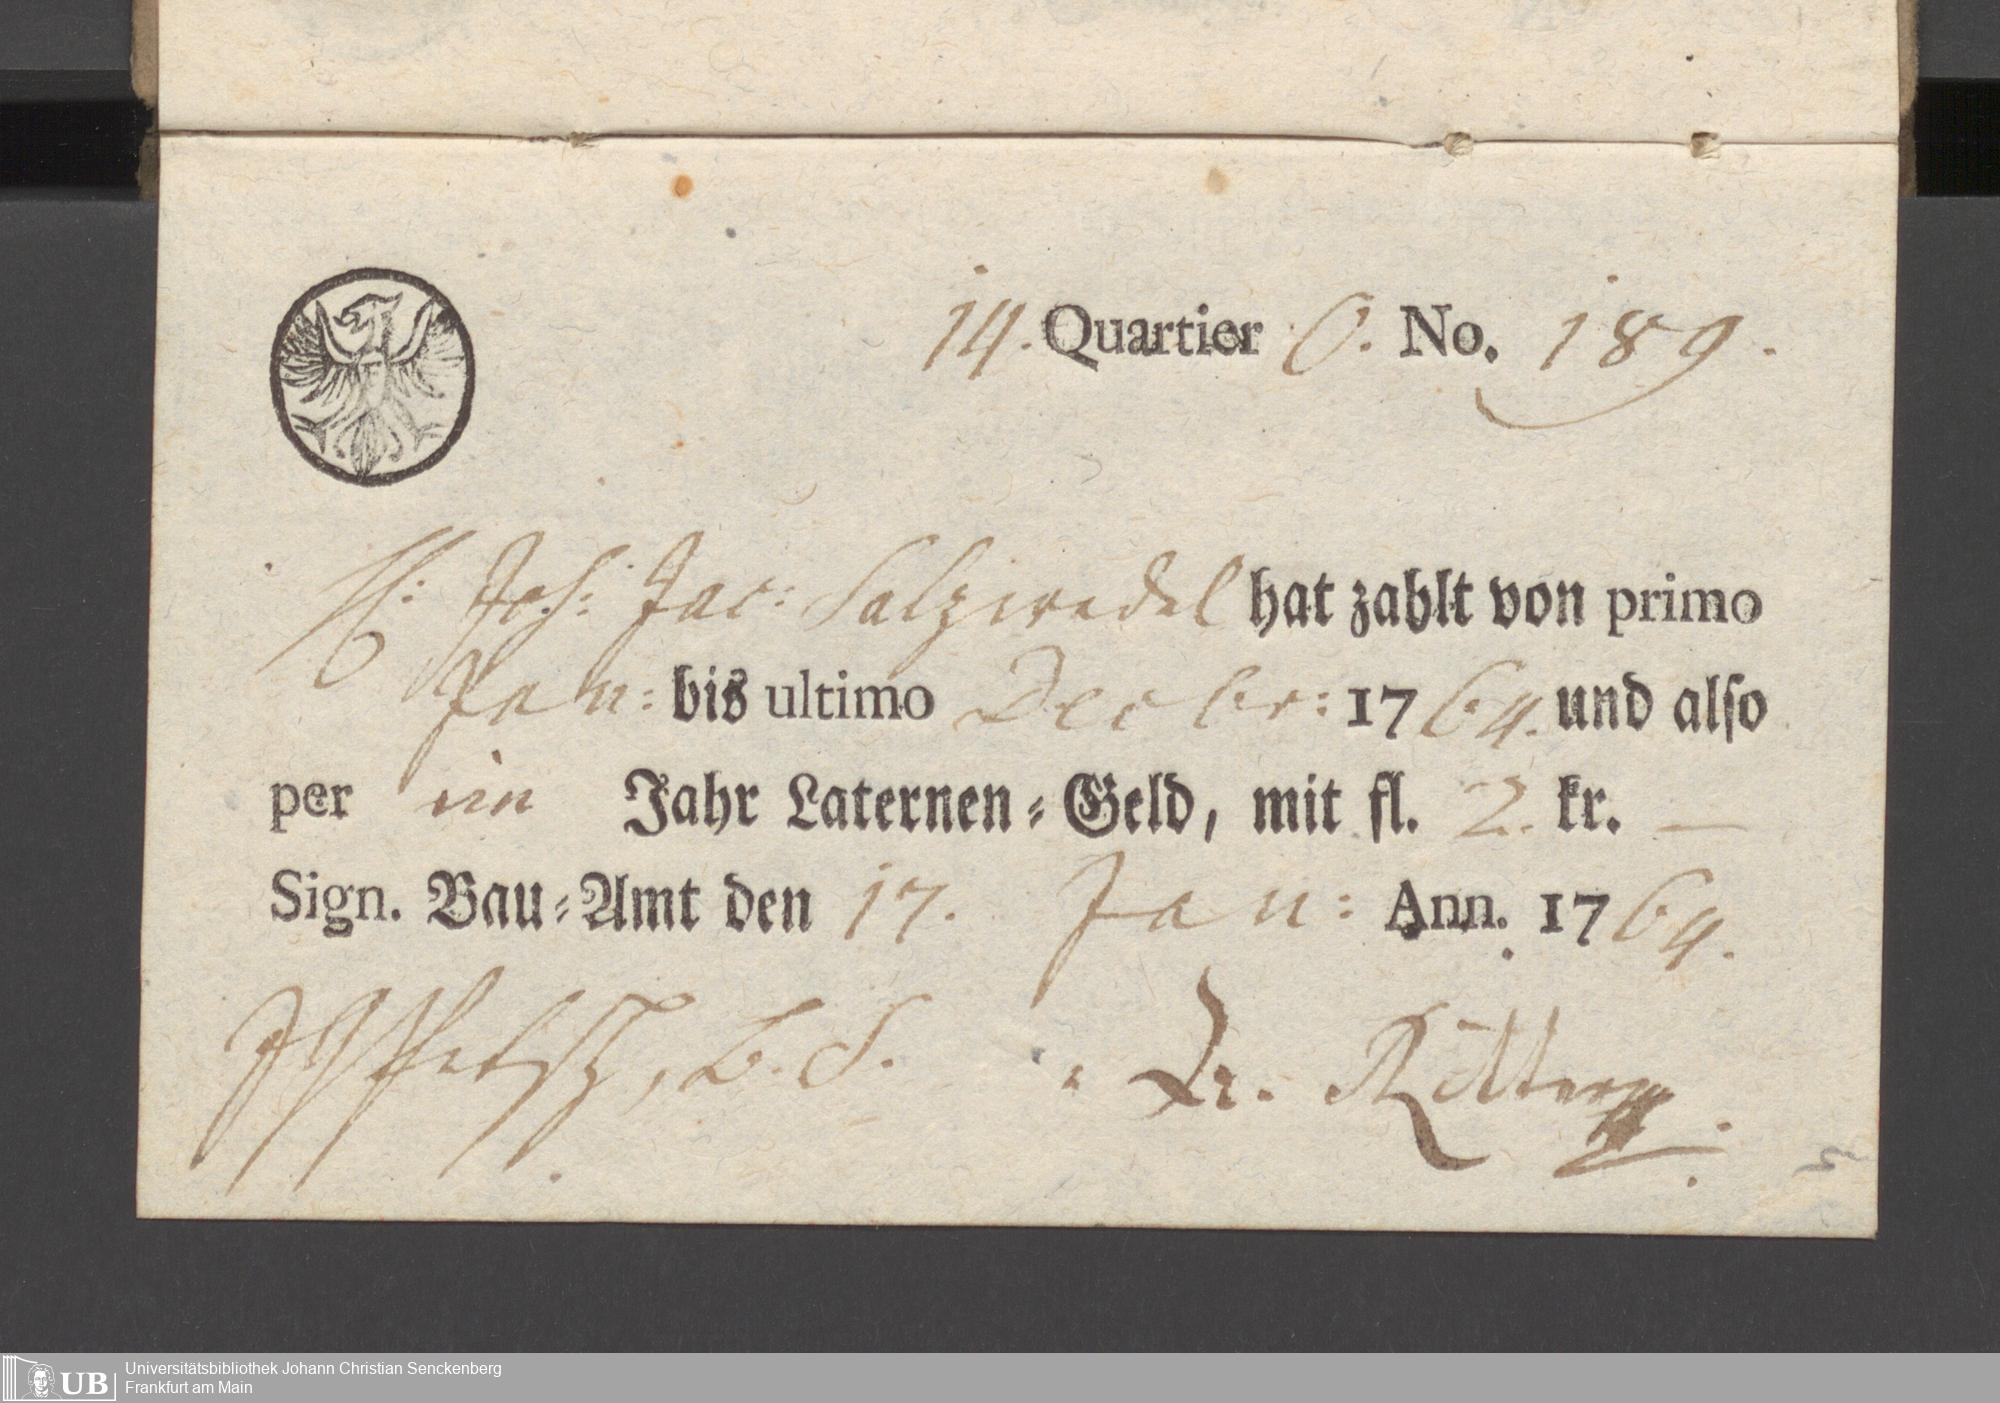 14. Quartier O. No. 189.
H: Joh: Jac: Salzwedel hat zahlt von primo
Jan: bis ultimo Decbr: 1764. und also
per ein Jahr Laternen-Geld, mit fl. 2. kr. —
Sign. Bau-Amt den 17. Jan: Ann. 1764.
B. S. Dr. Ritter
UB Universitätsbibliothek Johann Christian Senckenberg
Frankfurt am Main